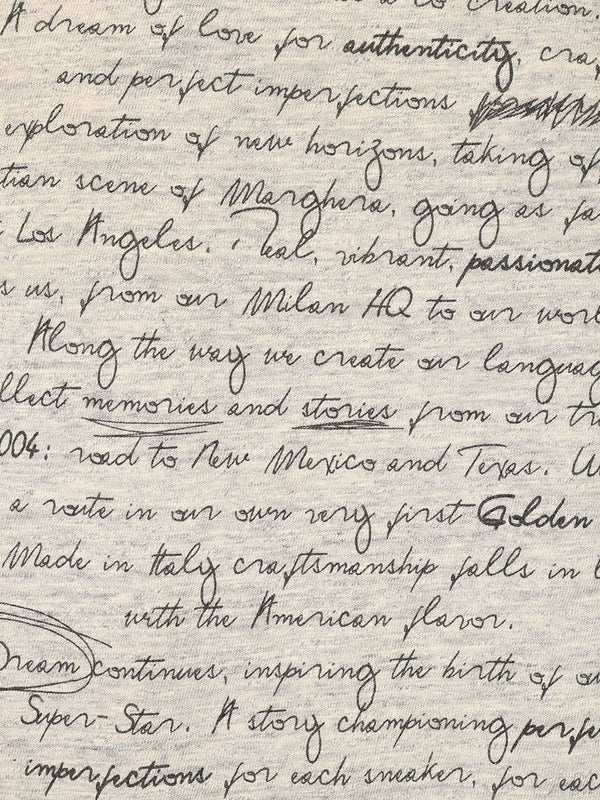 creation.
A dream of love for authenticity, cra
and perfect imperfections
exploration of new horizons, taking of
tian scene of Marghera, going as fa
Los Angeles. Real, vibrant, passionat
s us, from our Milan HQ to our worl
Along the way we create our languag
llect memories and stories from our tr
004: road to New Mexico and Texas. W
a route in our own very first Golden
Made in Italy craftsmanship falls in l
with the American flavor.
Dream continues, inspiring the birth of ou
Super-Star. A story championing perfe
imperfections for each sneaker, for eac